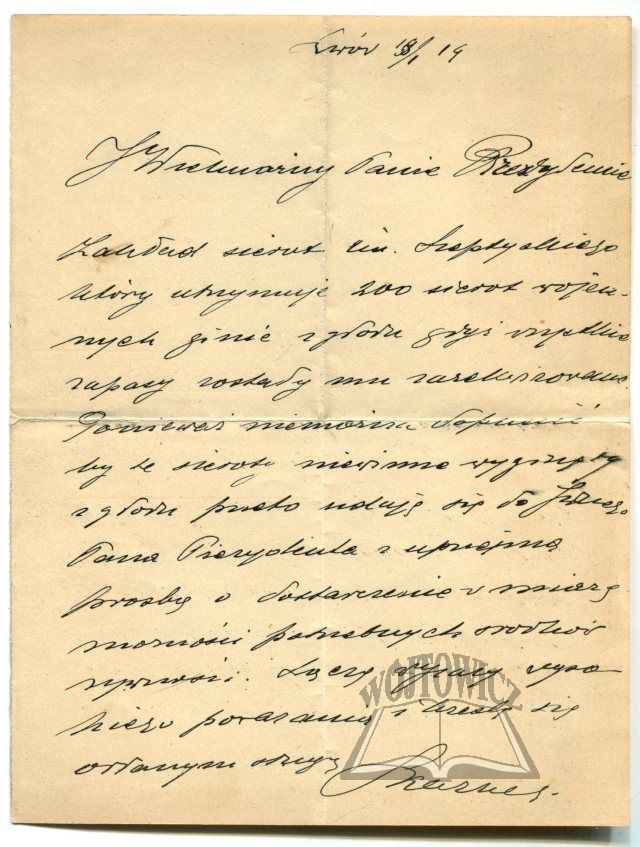 Lwów 18/1 19
JWielmożny Panie Prezydencie
Zakład sierot im. Szeptyckiego
który utrzymuje 200 sierot wojen-
nych ginie z głodu gdyż wszystkie
zapasy zostały mu zarekwirowane
Ponieważ niemożna dopuścić
by te sieroty niewinne wyginęły
z głodu przeto udaję się do JWnego
Pana Prezydenta z uprzejmą
prośbą o dostarczenie w miarę
możności potrzebnych środków
żywności. Łączę wyrazy wyso
kiego poważania i kreślę się
oddanym sługą
WÓJTOWICZ